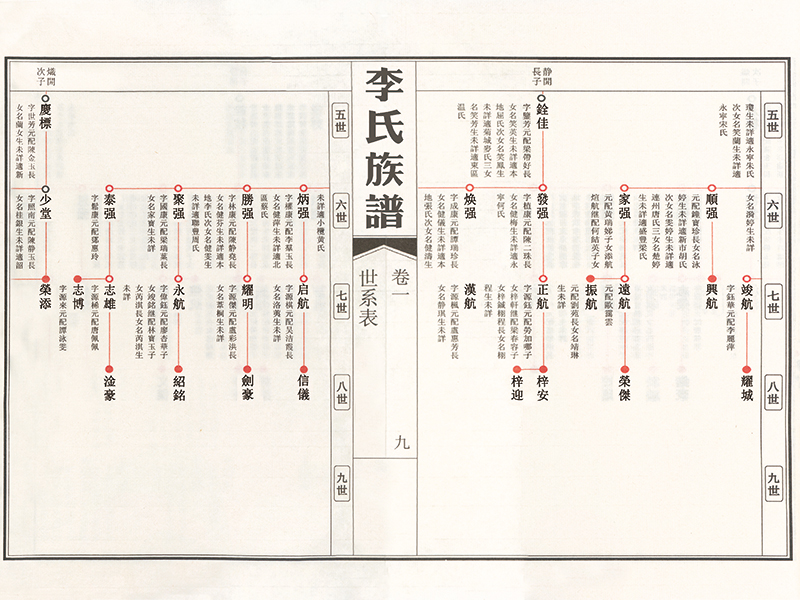 五世
六世
七世
八世
九世
瓊生未詳適永寧朱氏
次女名笑蘭生未詳適
永寧宋氏
靜開
長子
銓佳
字鑒芳元配梁帶好長
女名笑英生未詳適本
地屈氏次女名笑鳳生
未詳適菊城麥氏三女
名笑芳生未詳適東區
温氏
女名漪婷生未詳
順强
元配鍾寶珍長女名泳
婷生未詳適新市胡氏
次女名雯婷生未詳適
連州唐氏三女名楚婷
生未詳適盛豐梁氏
家强
元配黃瑞娣子女添航
煊航繼配何結英子女
發强
字植康元配陳二珠長
女名健梅生未詳適永
寧何氏
焕强
字成康元配譚瑞珍長
女名健儀生未詳適本
地張氏次女名健濤生
竣航
字鈺華元配李麗萍
興航
遠航
元配歐靄雲
振航
元配劉苑長女名靖琳
生未詳
正航
字源鈺元配勞加鄉子
女梓軒繼配梁春容子
女梓鍼棚程長女名棚
程生未詳
漢航
字源楓元配盧惠芳長
女名靜琪生未詳
耀城
榮傑
梓安
梓迎
李氏族譜
卷一
世系表
九
五世
六世
七世
八世
九世
熾開
次子
慶標
字世芳元配陳金玉長
女名蘭女生未詳適新
未詳適小欖黃氏
炳强
字權康元配李羣玉長
女名健萍生未詳適北
區蔡氏
勝强
字林康元配陳静堯長
女名健芬生未詳適本
地李氏次女名健雯生
未詳適聯豊周氏
聚强
字國康元配梁瑞葉長
女名家寶生未詳
泰强
字鬆康元配鄧惠玲
少堂
字照南元配陳靜玉長
女名桂銀生未詳適韶
启航
字源棋元配吴洁霞長
女名洛萬生未詳
耀明
字源傑元配盧彩洪長
女名葦桐生未詳
永航
字偉鈺元配廖杏華子
女竣銘繼配林寶玉子
女芮淇長女名芮淇生
未詳
志雄
字源稀元配唐佩佩
志博
字源來元配譚泳雯
榮添
信儀
劍豪
紹銘
淦豪